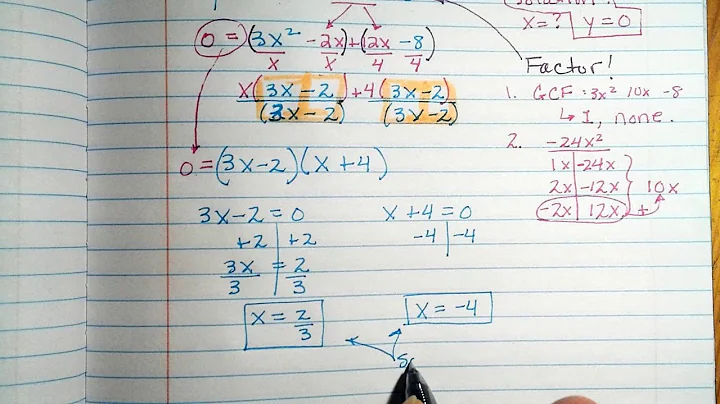 x=? y=0
0 = (3x² - 2x)+(12x - 8)
x x 4 4
x(3x - 2) + 4(3x - 2)
(3x - 2) (3x - 2)
0 = (3x-2)(x + 4)
3x - 2 = 0
+2 +2
3x = 2
3 3
x = 2/3
x + 4 = 0
-4 -4
x = -4
Factor!
1. GCF : 3x² 10x -8
↳ 1, none.
2. -24x²
1x -24x
2x -12x 10x
-2x 12x +